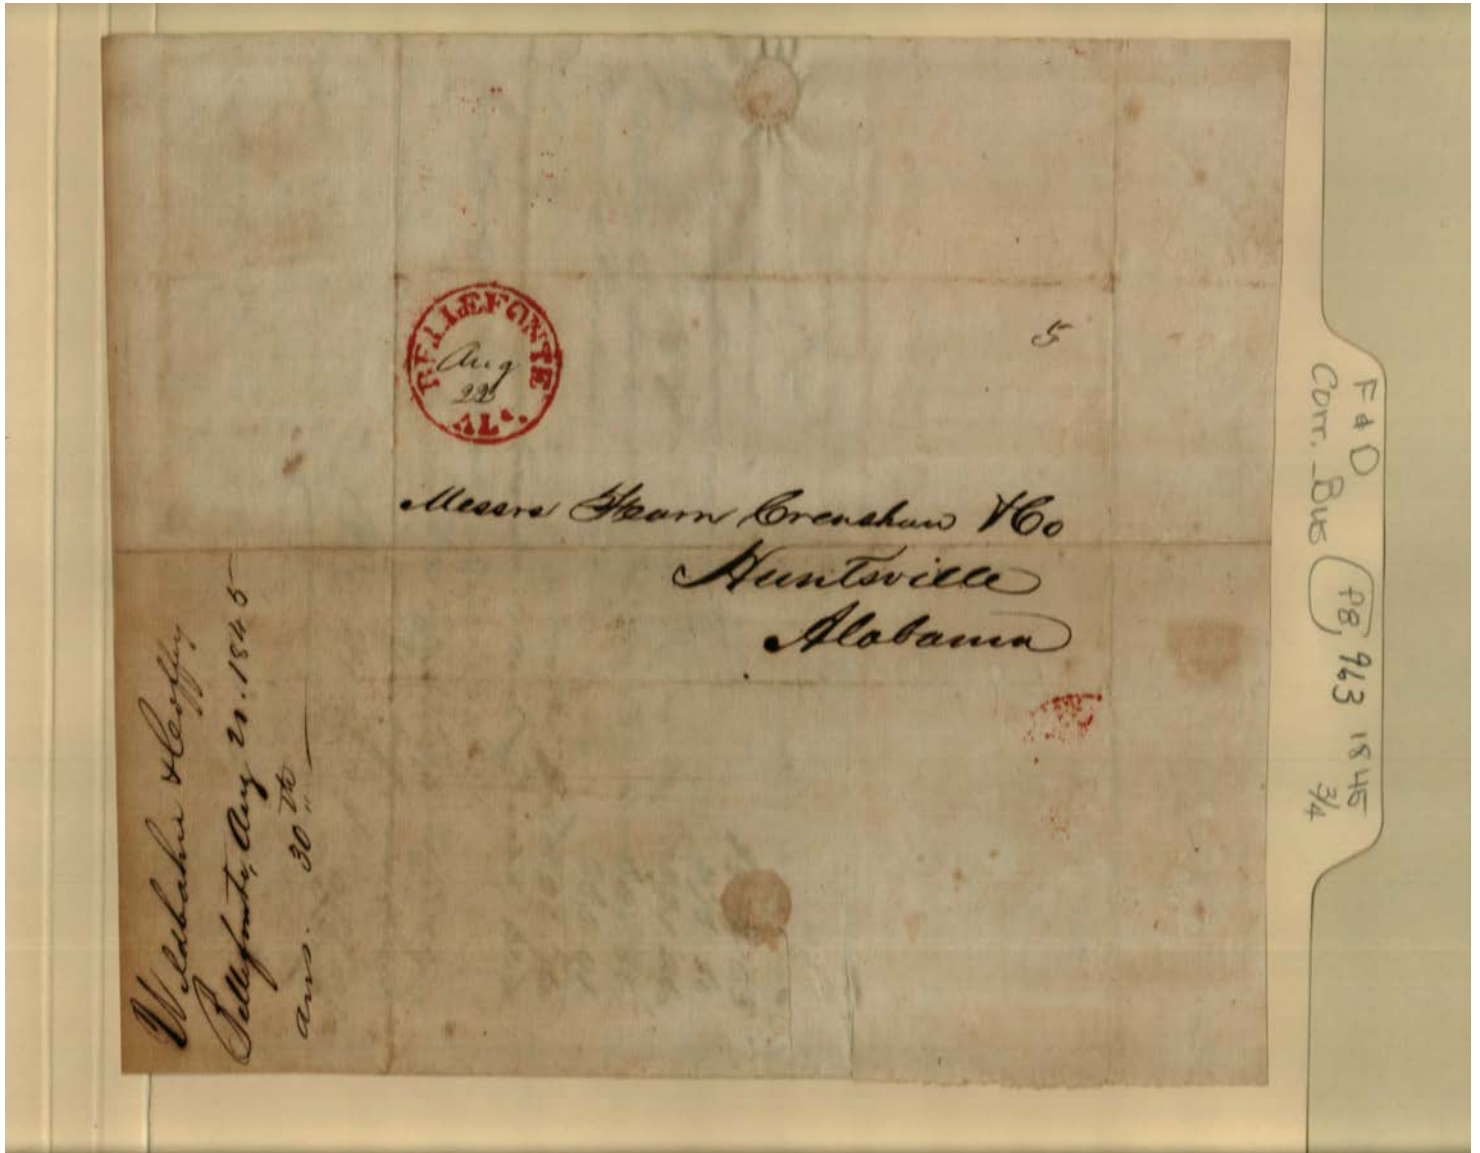 BELLEFONTE
Aug
22
ALA.
5
Messrs Fearn Crenshaw & Co
Huntsville
Alabama
Wildbahn & Coffey
Bellefonte, Aug 21. 1845
ans. 30th
F & D
Corr. Bus P8, 963 1845
3/4